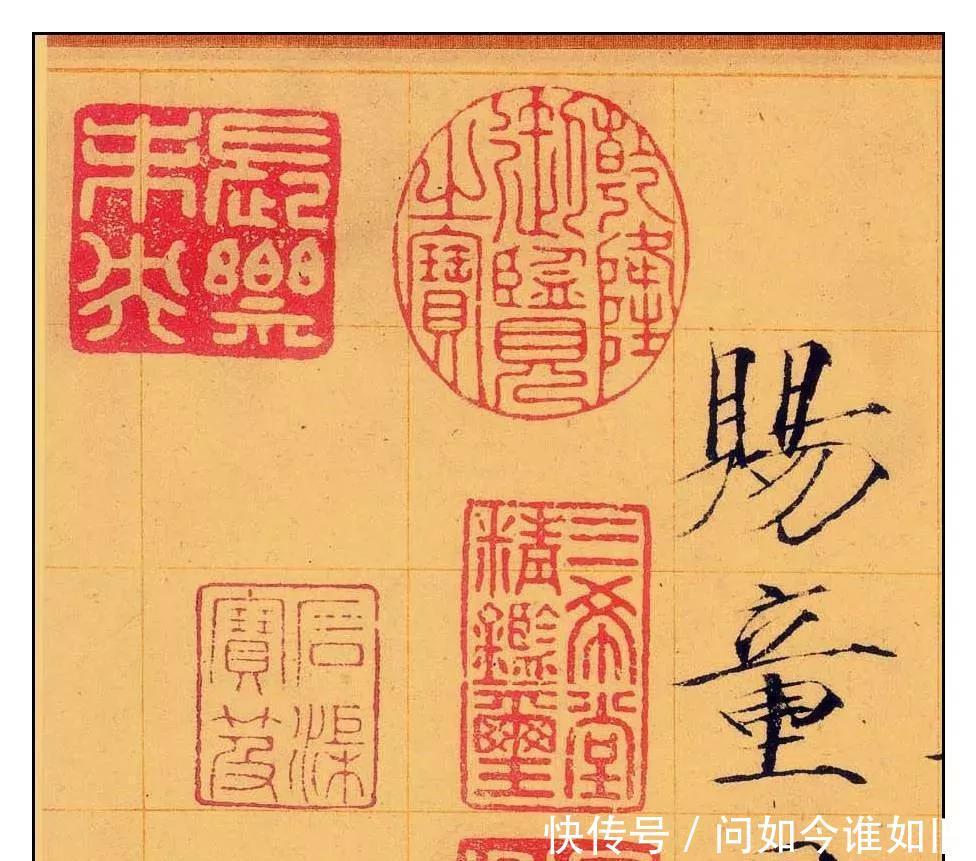 賜童
乾隆御覽之寶
三希堂精鑑璽
長樂未央
石渠寶笈
快传号 / 问如今谁如